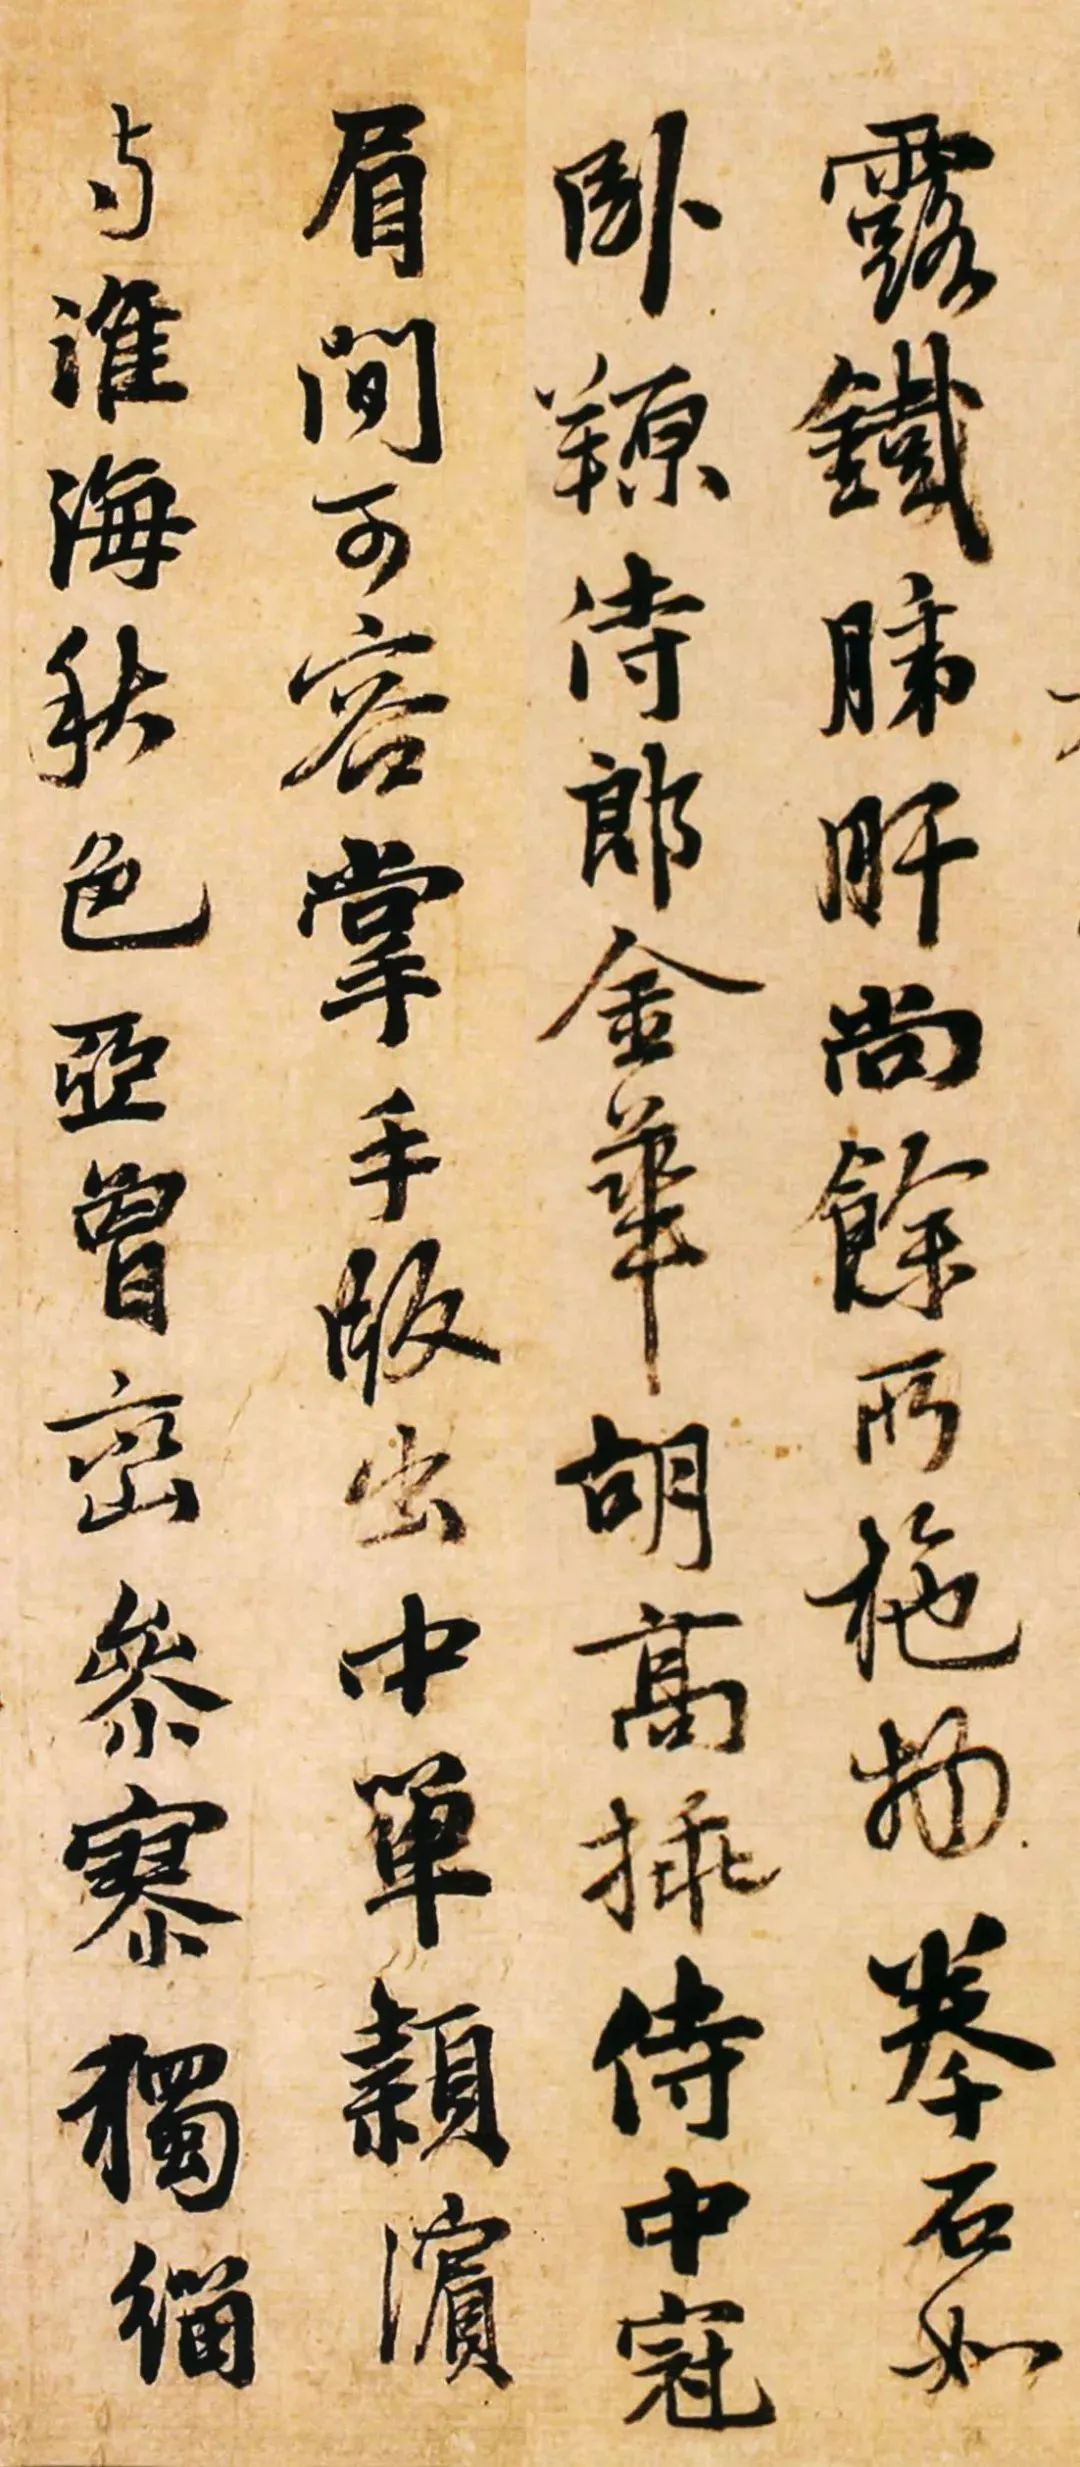 露鐵肺肝尚餘所施物拳石如
卧羱侍郎金華胡高插侍中冠
眉間可容掌手版出中單潁濱
与淮海秋色亞曾巒參寥獨緇